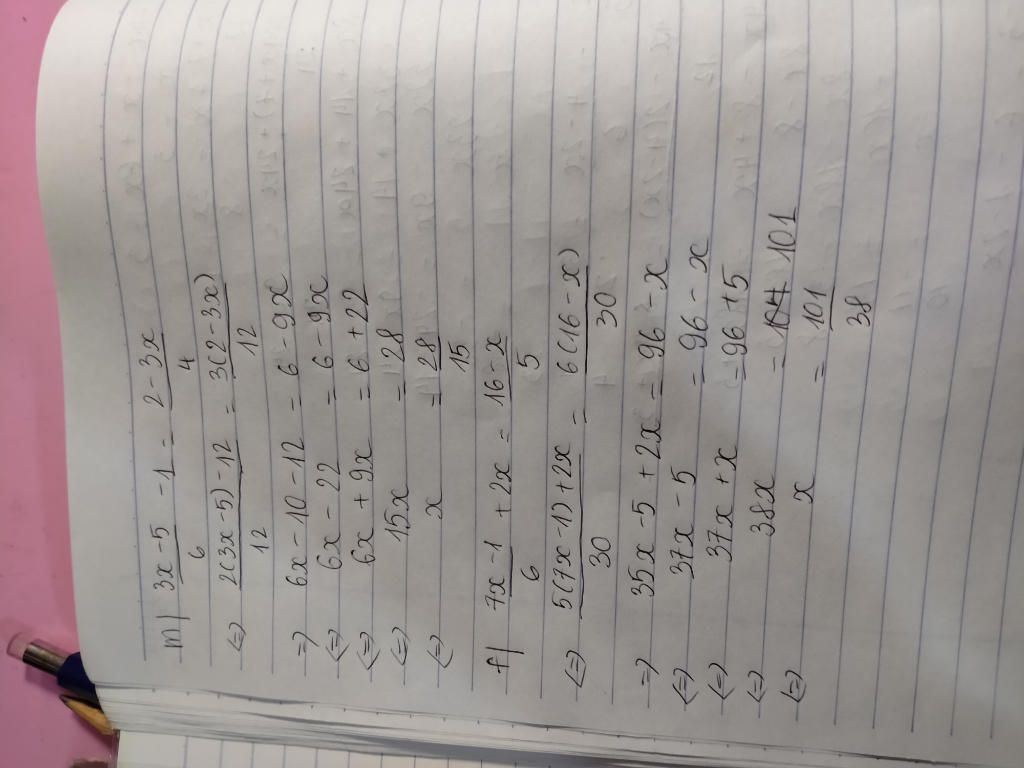 m) 3x-5/6 - 1 = 2-3x/4
<=> 2(3x-5)-12/12 = 3(2-3x)/12
=> 6x-10-12 = 6-9x
<=> 6x-22 = 6-9x
<=> 6x+9x = 6+22
<=> 15x = 28
<=> x = 28/15
f) 7x-1/6 + 2x = 16-x/5
<=> 5(7x-1)+2x/30 = 6(16-x)/30
=> 35x-5+2x = 96-x
<=> 37x-5 = 96-x
<=> 37x+x = 96+5
<=> 38x = 101
<=> x = 101/38